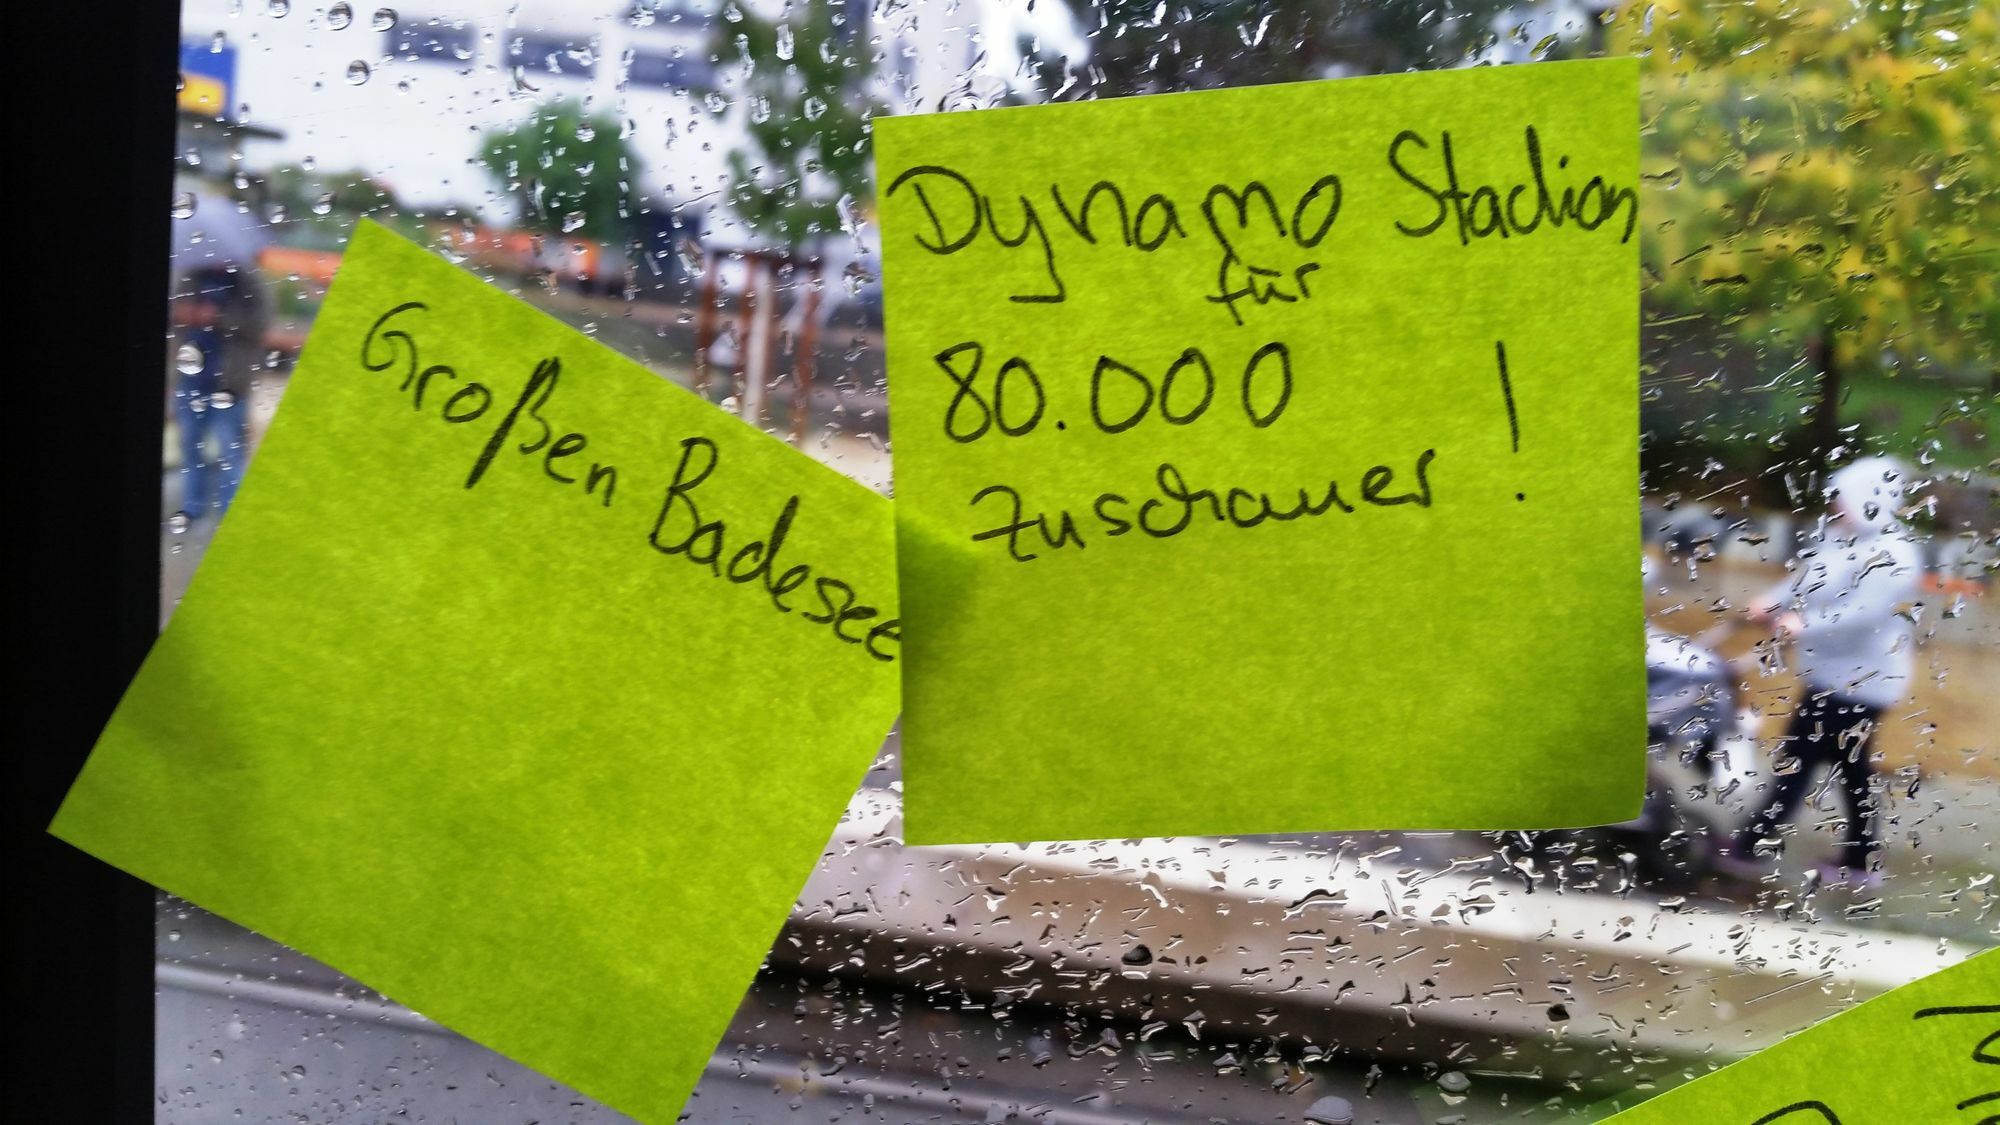 Großen Badesee
Dynamo Stadion
für
80.000 !
Zuschauer